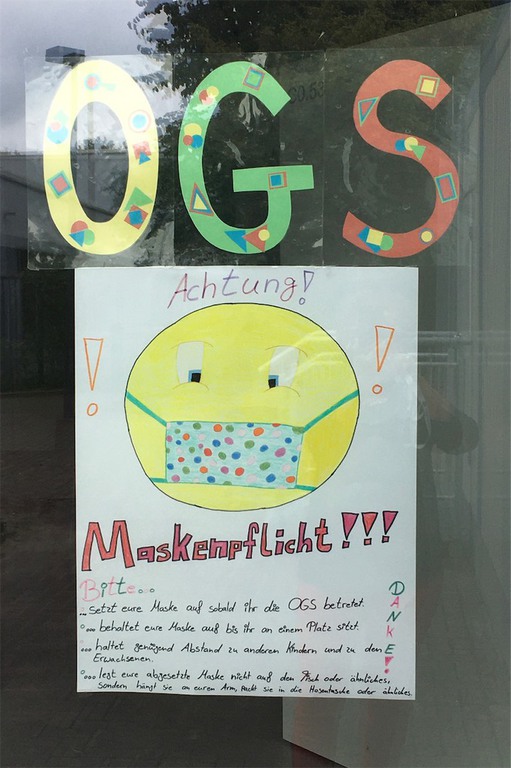 OGS
Achtung!
! !
Maskenpflicht!!!
Bitte...
... setzt eure Maske auf sobald ihr die OGS betretet.
... behaltet eure Maske auf bis ihr an einem Platz sitzt.
... haltet genügend Abstand zu anderen Kindern und zu den
Erwachsenen.
... legt eure abgesetzte Maske nicht auf den Tisch oder ähnliches,
sondern hängt sie an euren Arm, packt sie in die Hosentasche oder ähnliches.
DANKE!